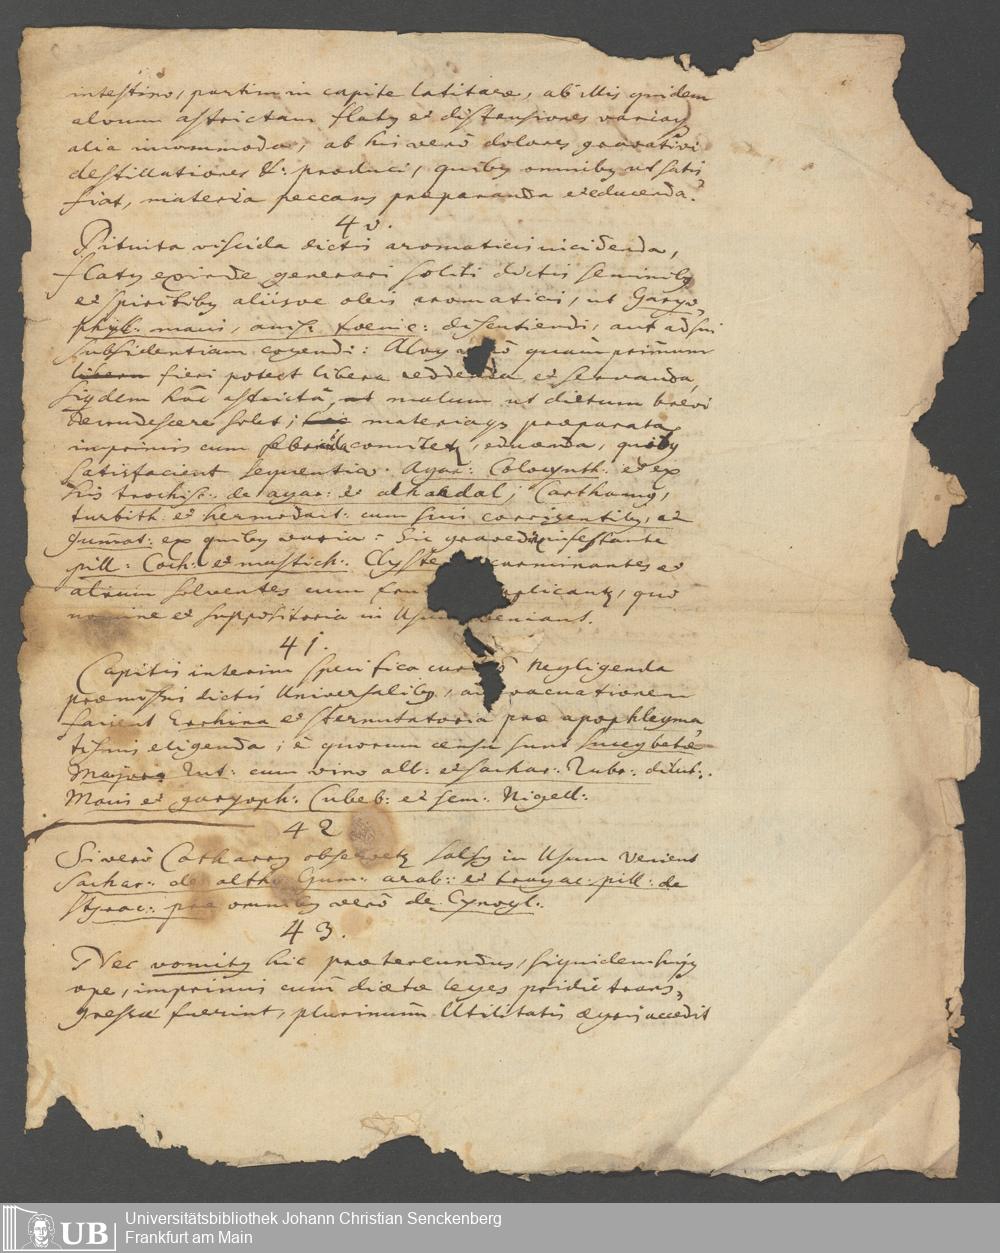 intestino, partim in capite latitare, ab illis quidem
alvum astrictam flatq et distensiones varias
alia incommoda, ab his verò dolores gravativi
destillationes &: produci, quibq omnibq ut satis
fiat, materia peccans praeparanda et educenda.
40.
Pituita viscida dictis aromaticis incidenda,
flatq exinde generari soliti dictis seminibq
et spiritibq aliisve oleis aromaticis, ut Garyo,
phyll: macis, anis: foenic: discutiendi, aut ad sui
subsidentiam cogendi: Alvq verò quàm primum
libera fieri potest libera reddenda et servanda,
siqdem hâc astrictâ, malum ut dictum brevi
recrudescere solet; materiaqs praeparata
imprimis cum febricula comitetq, educenda, quibq
satisfacient sequentia. Agar: Colocynth: et ex
his trochisc: de agar: et alhandal; Carthamq,
turbith: et hermodact: cum suis corrigentibq, et
gummt: ex quibq varia: Sic gravedine infestante
pill: Coch: et mastich: Clyste carminantes et
alvum solventes cum fru plicantq, quo
nomine et suppositoria in Usum veniant.
41.
Capitis interim specifica cura negligenda
praemissis dictis Universalibq, evacuationem
facient Errhina et sternutatoria prae apophlegma
tismis eligenda; è quorum censu sunt succq betae
Majora Rut: cum vino alb: et sachar: Rubr: dilut:.
Macis et garyoph: Cubeb: et sem: Nigell:
42
Si verò Catharrq observetq salsq in Usum venient
Sachar: de alth Gum: arab: et tragac: pill: de
styrac: prae omnibq verò de Cynogl:.
43.
Nec vomitq hic praetereundus, siquidem hujq
ope, imprimis cum diaetae leges pridie trans,
gressae fuerint, plurimùm Utilitatis aegris accedit
UB
Universitätsbibliothek Johann Christian Senckenberg
Frankfurt am Main